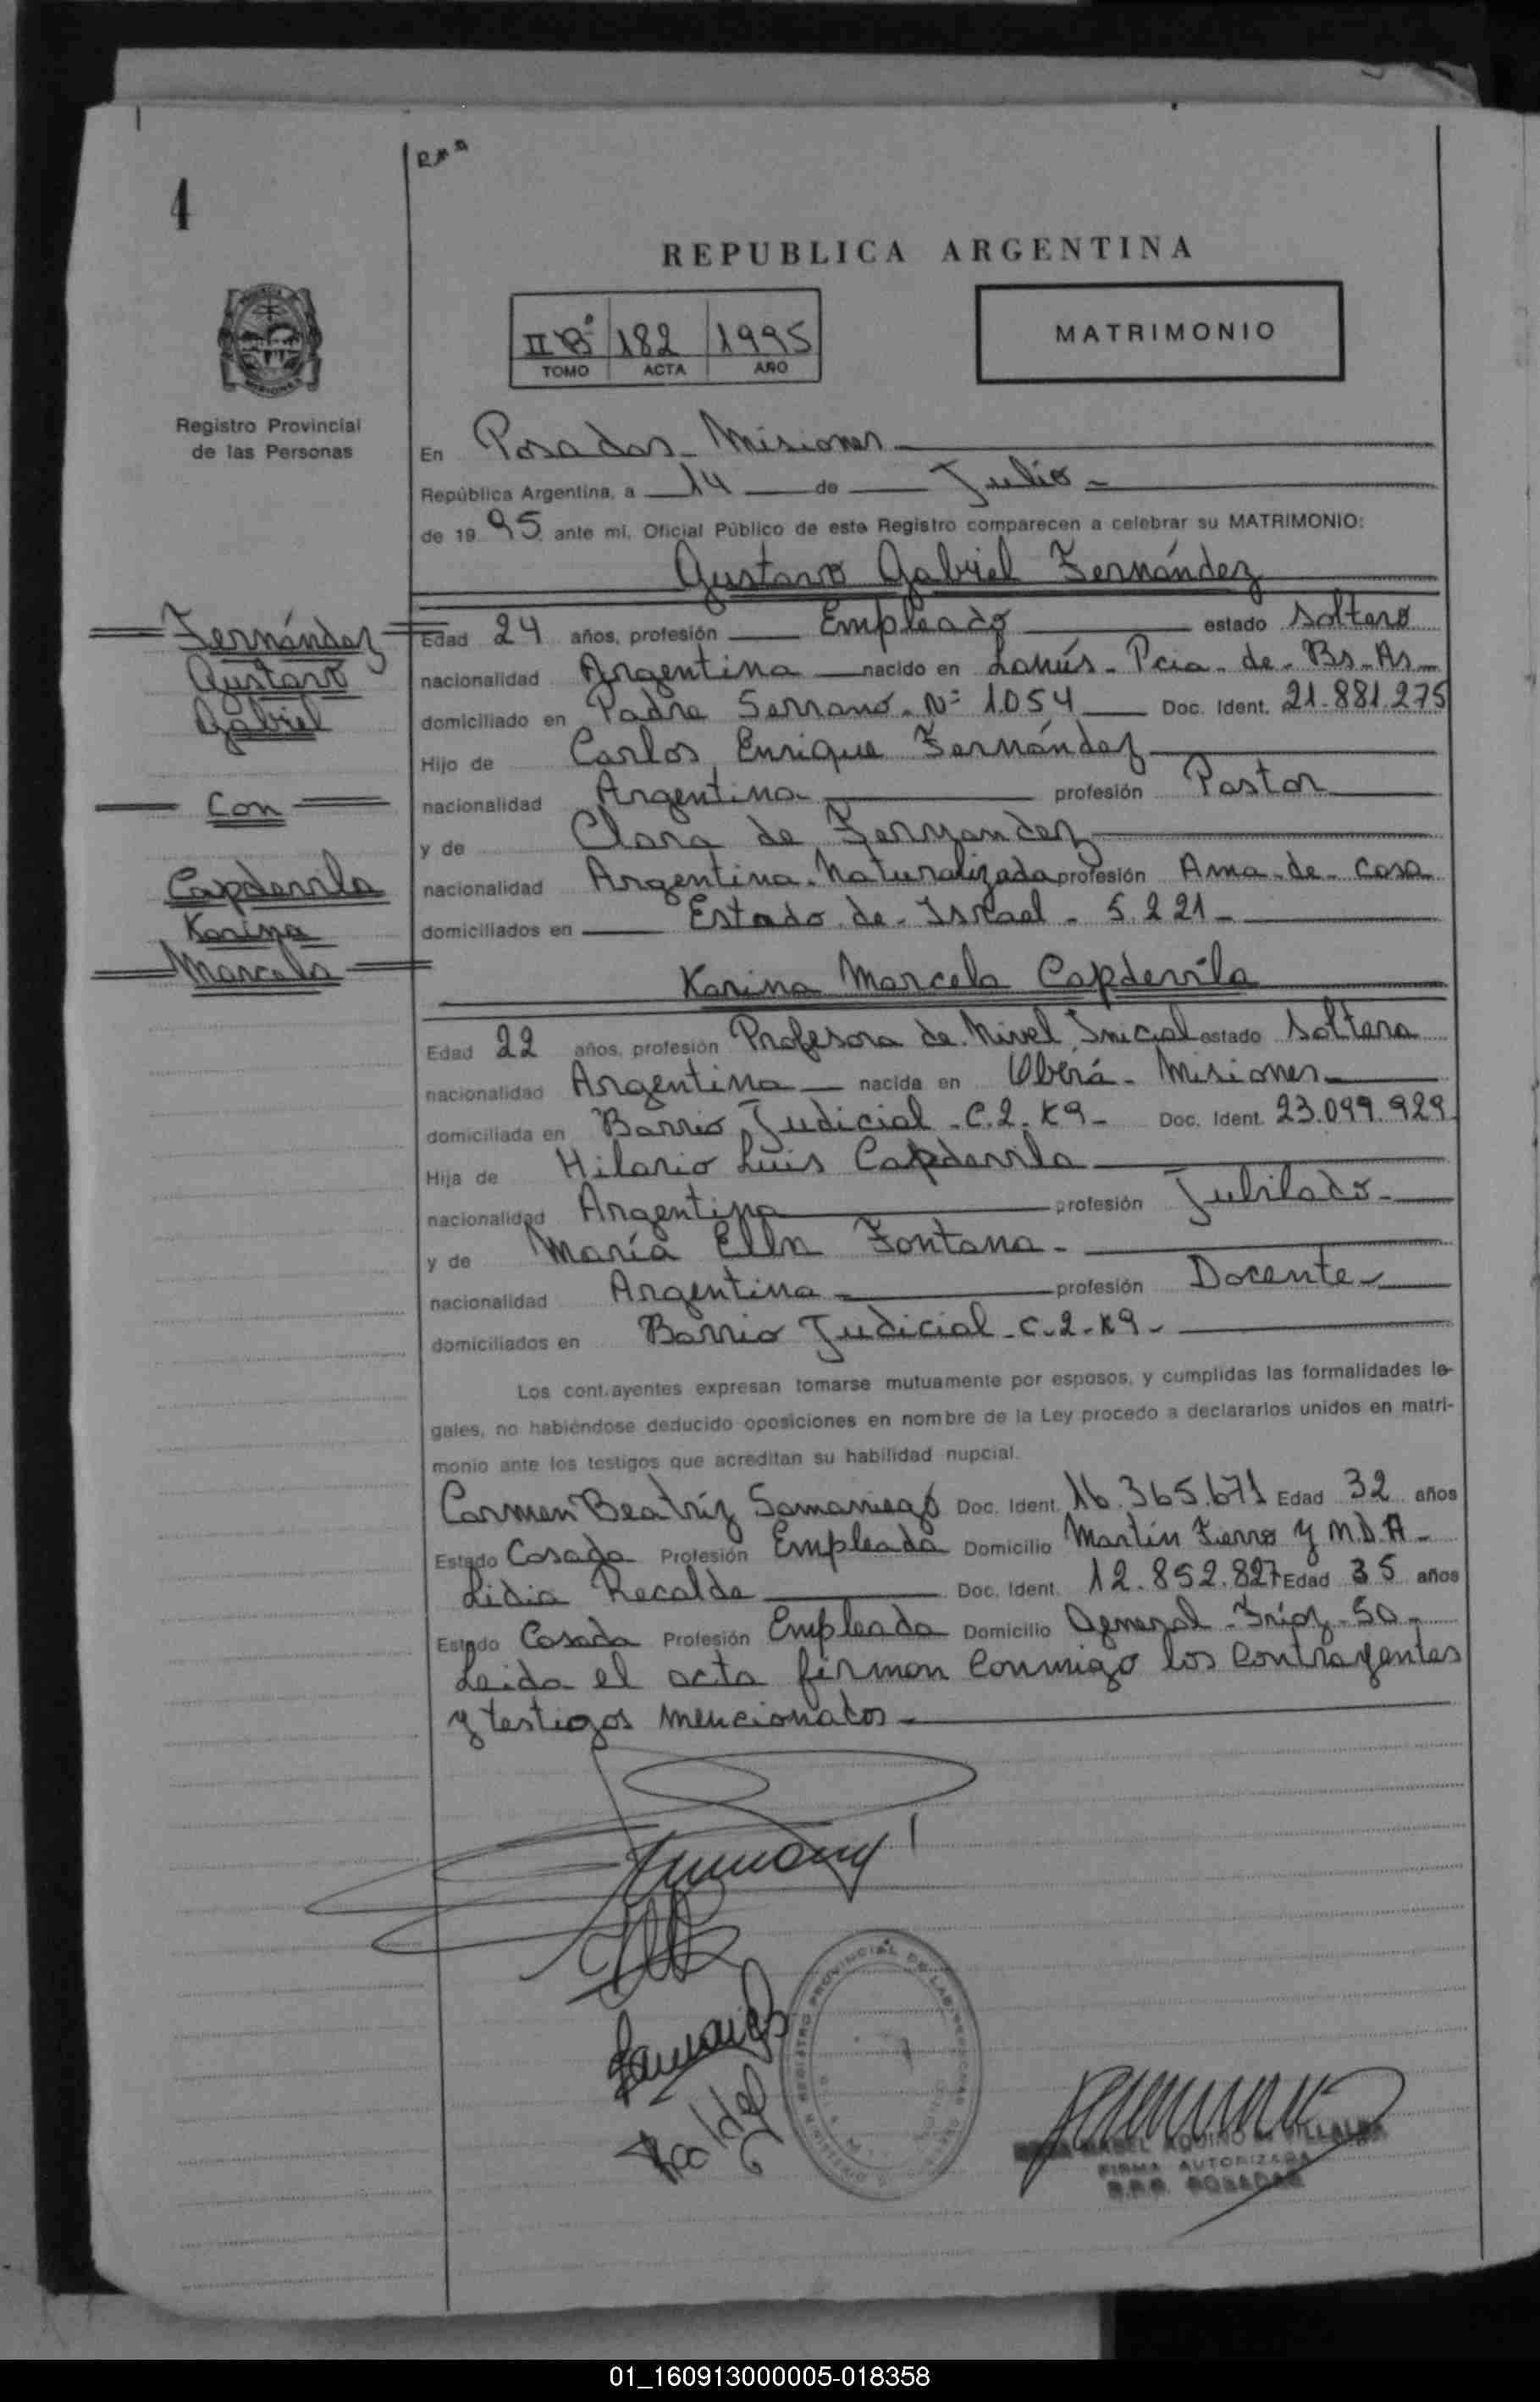 4
REPUBLICA ARGENTINA
II Bº 182 1995
TOMO ACTA AÑO
MATRIMONIO
Registro Provincial
de las Personas
En Posadas - Misiones
República Argentina, a 14 de Julio -
de 1995 ante mí, Oficial Público de este Registro comparecen a celebrar su MATRIMONIO:
Gustavo Gabriel Fernández
Fernández
Gustavo
Gabriel
Con
Capdevila
Karina
Marcela
Edad 24 años, profesión Empleado estado Soltero
nacionalidad Argentina nacido en Lanús - Pcia - de - Bs - As -
domiciliado en Padre Serrano - Nº 1054 Doc. Ident. 21.881.275
Hijo de Carlos Enrique Fernández
nacionalidad Argentina profesión Pastor
y de Clara de Fernandez
nacionalidad Argentina - Naturalizada profesión Ama - de - casa
domiciliados en Estado - de - Israel - 5221 -
Karina Marcela Capdevila
Edad 22 años, profesión Profesora de Nivel Inicial estado Soltera
nacionalidad Argentina nacida en Oberá - Misiones
domiciliada en Barrio Judicial - C.2. K9 - Doc. Ident. 23.099.929
Hija de Hilario Luis Capdevila
nacionalidad Argentina profesión Jubilado -
y de María Elba Fontana -
nacionalidad Argentina profesión Docente
domiciliados en Barrio Judicial - C - 2 - K9 -
Los contrayentes expresan tomarse mutuamente por esposos, y cumplidas las formalidades le-
gales, no habiéndose deducido oposiciones en nombre de la Ley procedo a declararlos unidos en matri-
monio ante los testigos que acreditan su habilidad nupcial.
Carmen Beatríz Samaniego Doc. Ident. 16.365.671 Edad 32 años
Estado Casada Profesión Empleada Domicilio Martín Fierro y M.D.A -
Lidia Recalde Doc. Ident. 12.852.827 Edad 35 años
Estado Casada Profesión Empleada Domicilio General - Fríaz - 50 -
Leida el acta firman conmigo los contrayentes
y testigos mencionados -
REGISTRO PROVINCIAL DE LAS PERSONAS
ISABEL AQUINO de VILLALBA
FIRMA AUTORIZADA
R.P.P. POSADAS
01_160913000005-018358